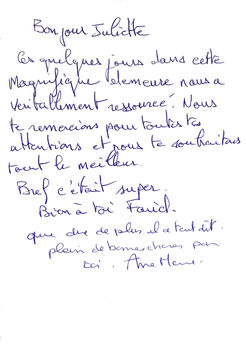 Bonjour Juliette
Ces quelques jours dans cette
magnifique demeure nous a
véritablement ressourcé. Nous
te remercions pour toutes tes
attentions et pour te souhaitons
tout le meilleur.
Bref c'était super.
Bien à toi Farid.
que dire de plus il a tout dit.
plein de bonnes choses pour
toi. Anne Marie.